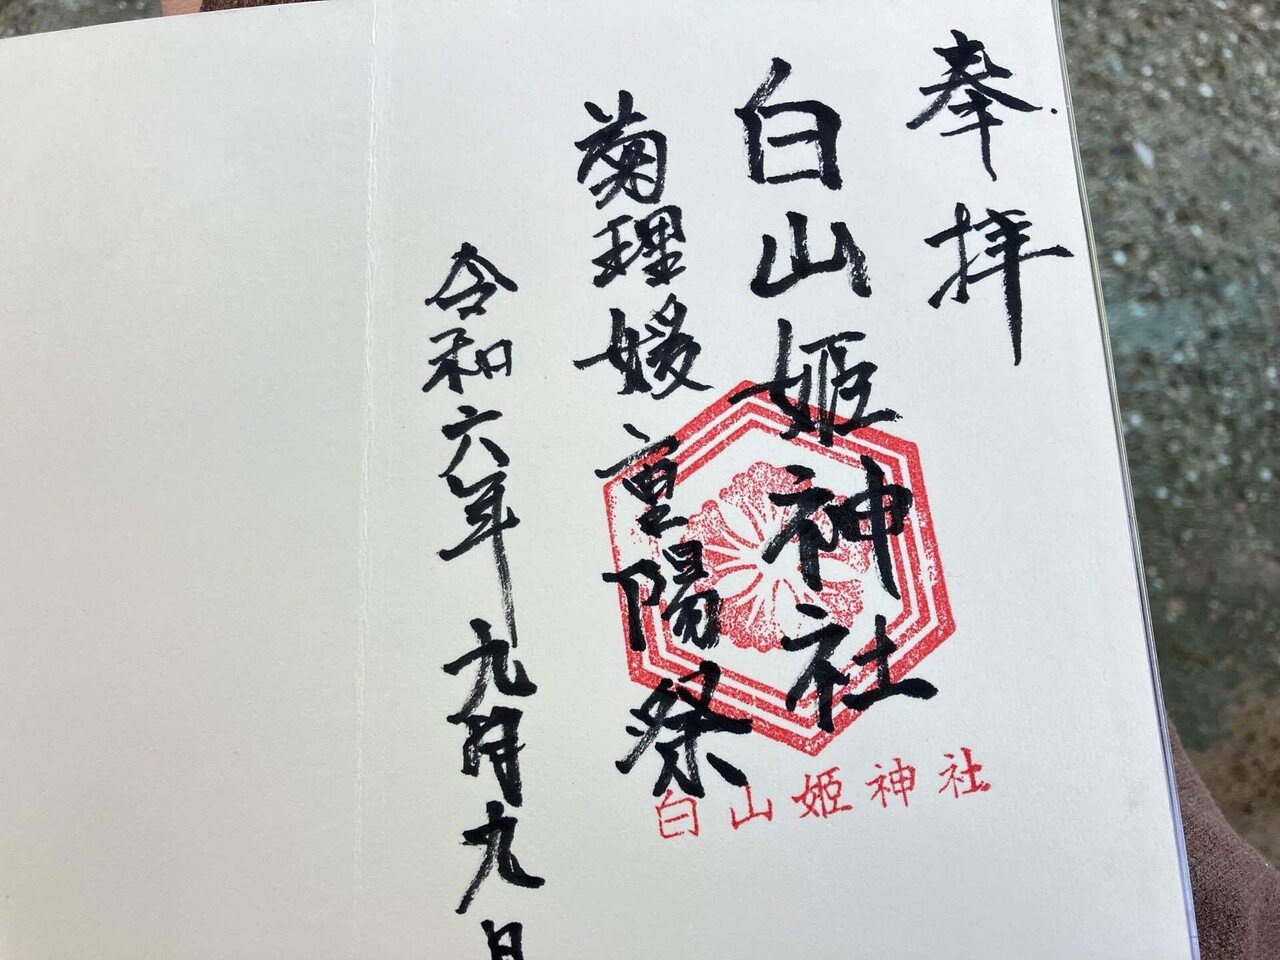 奉拝
白山姫神社
菊理媛重陽祭
令和六年九月九日
白山姫神社